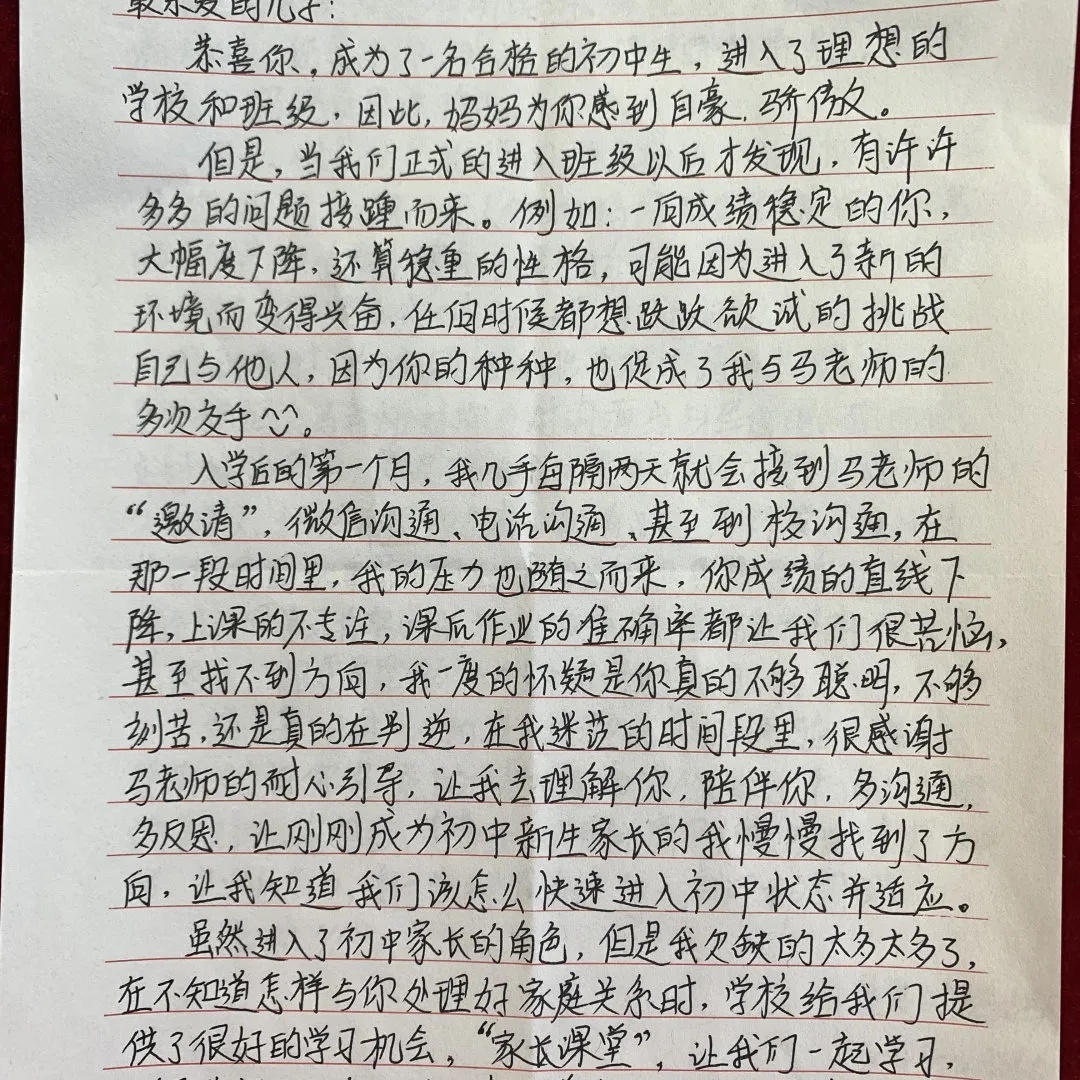 最亲爱的儿子：
恭喜你，成为了一名合格的初中生，进入了理想的
学校和班级，因此，妈妈为你感到自豪，骄傲。
但是，当我们正式的进入班级以后才发现，有许许
多多的问题接踵而来。例如：一向成绩稳定的你，
大幅度下降，还算稳重的性格，可能因为进入了新的
环境而变得兴奋，任何时候都想跃跃欲试的挑战
自己与他人，因为你的种种，也促成了我与马老师的
多次交手^◡^。
入学后的第一个月，我几乎每隔两天就会接到马老师的
“邀请”，微信沟通、电话沟通、甚至到校沟通，在
那一段时间里，我的压力也随之而来，你成绩的直线下
降，上课的不专注，课后作业的准确率都让我们很苦恼，
甚至找不到方向，我一度的怀疑是你真的不够聪明，不够
刻苦，还是真的在判逆，在我迷茫的时间段里，很感谢
马老师的耐心引导，让我去理解你，陪伴你，多沟通，
多反思，让刚刚成为初中新生家长的我慢慢找到了方
向，让我知道我们该怎么快速进入初中状态并适应。
虽然进入了初中家长的角色，但是我欠缺的太多太多了，
在不知道怎样与你处理好家庭关系时，学校给我们提
供了很好的学习机会，“家长课堂”，让我们一起学习，